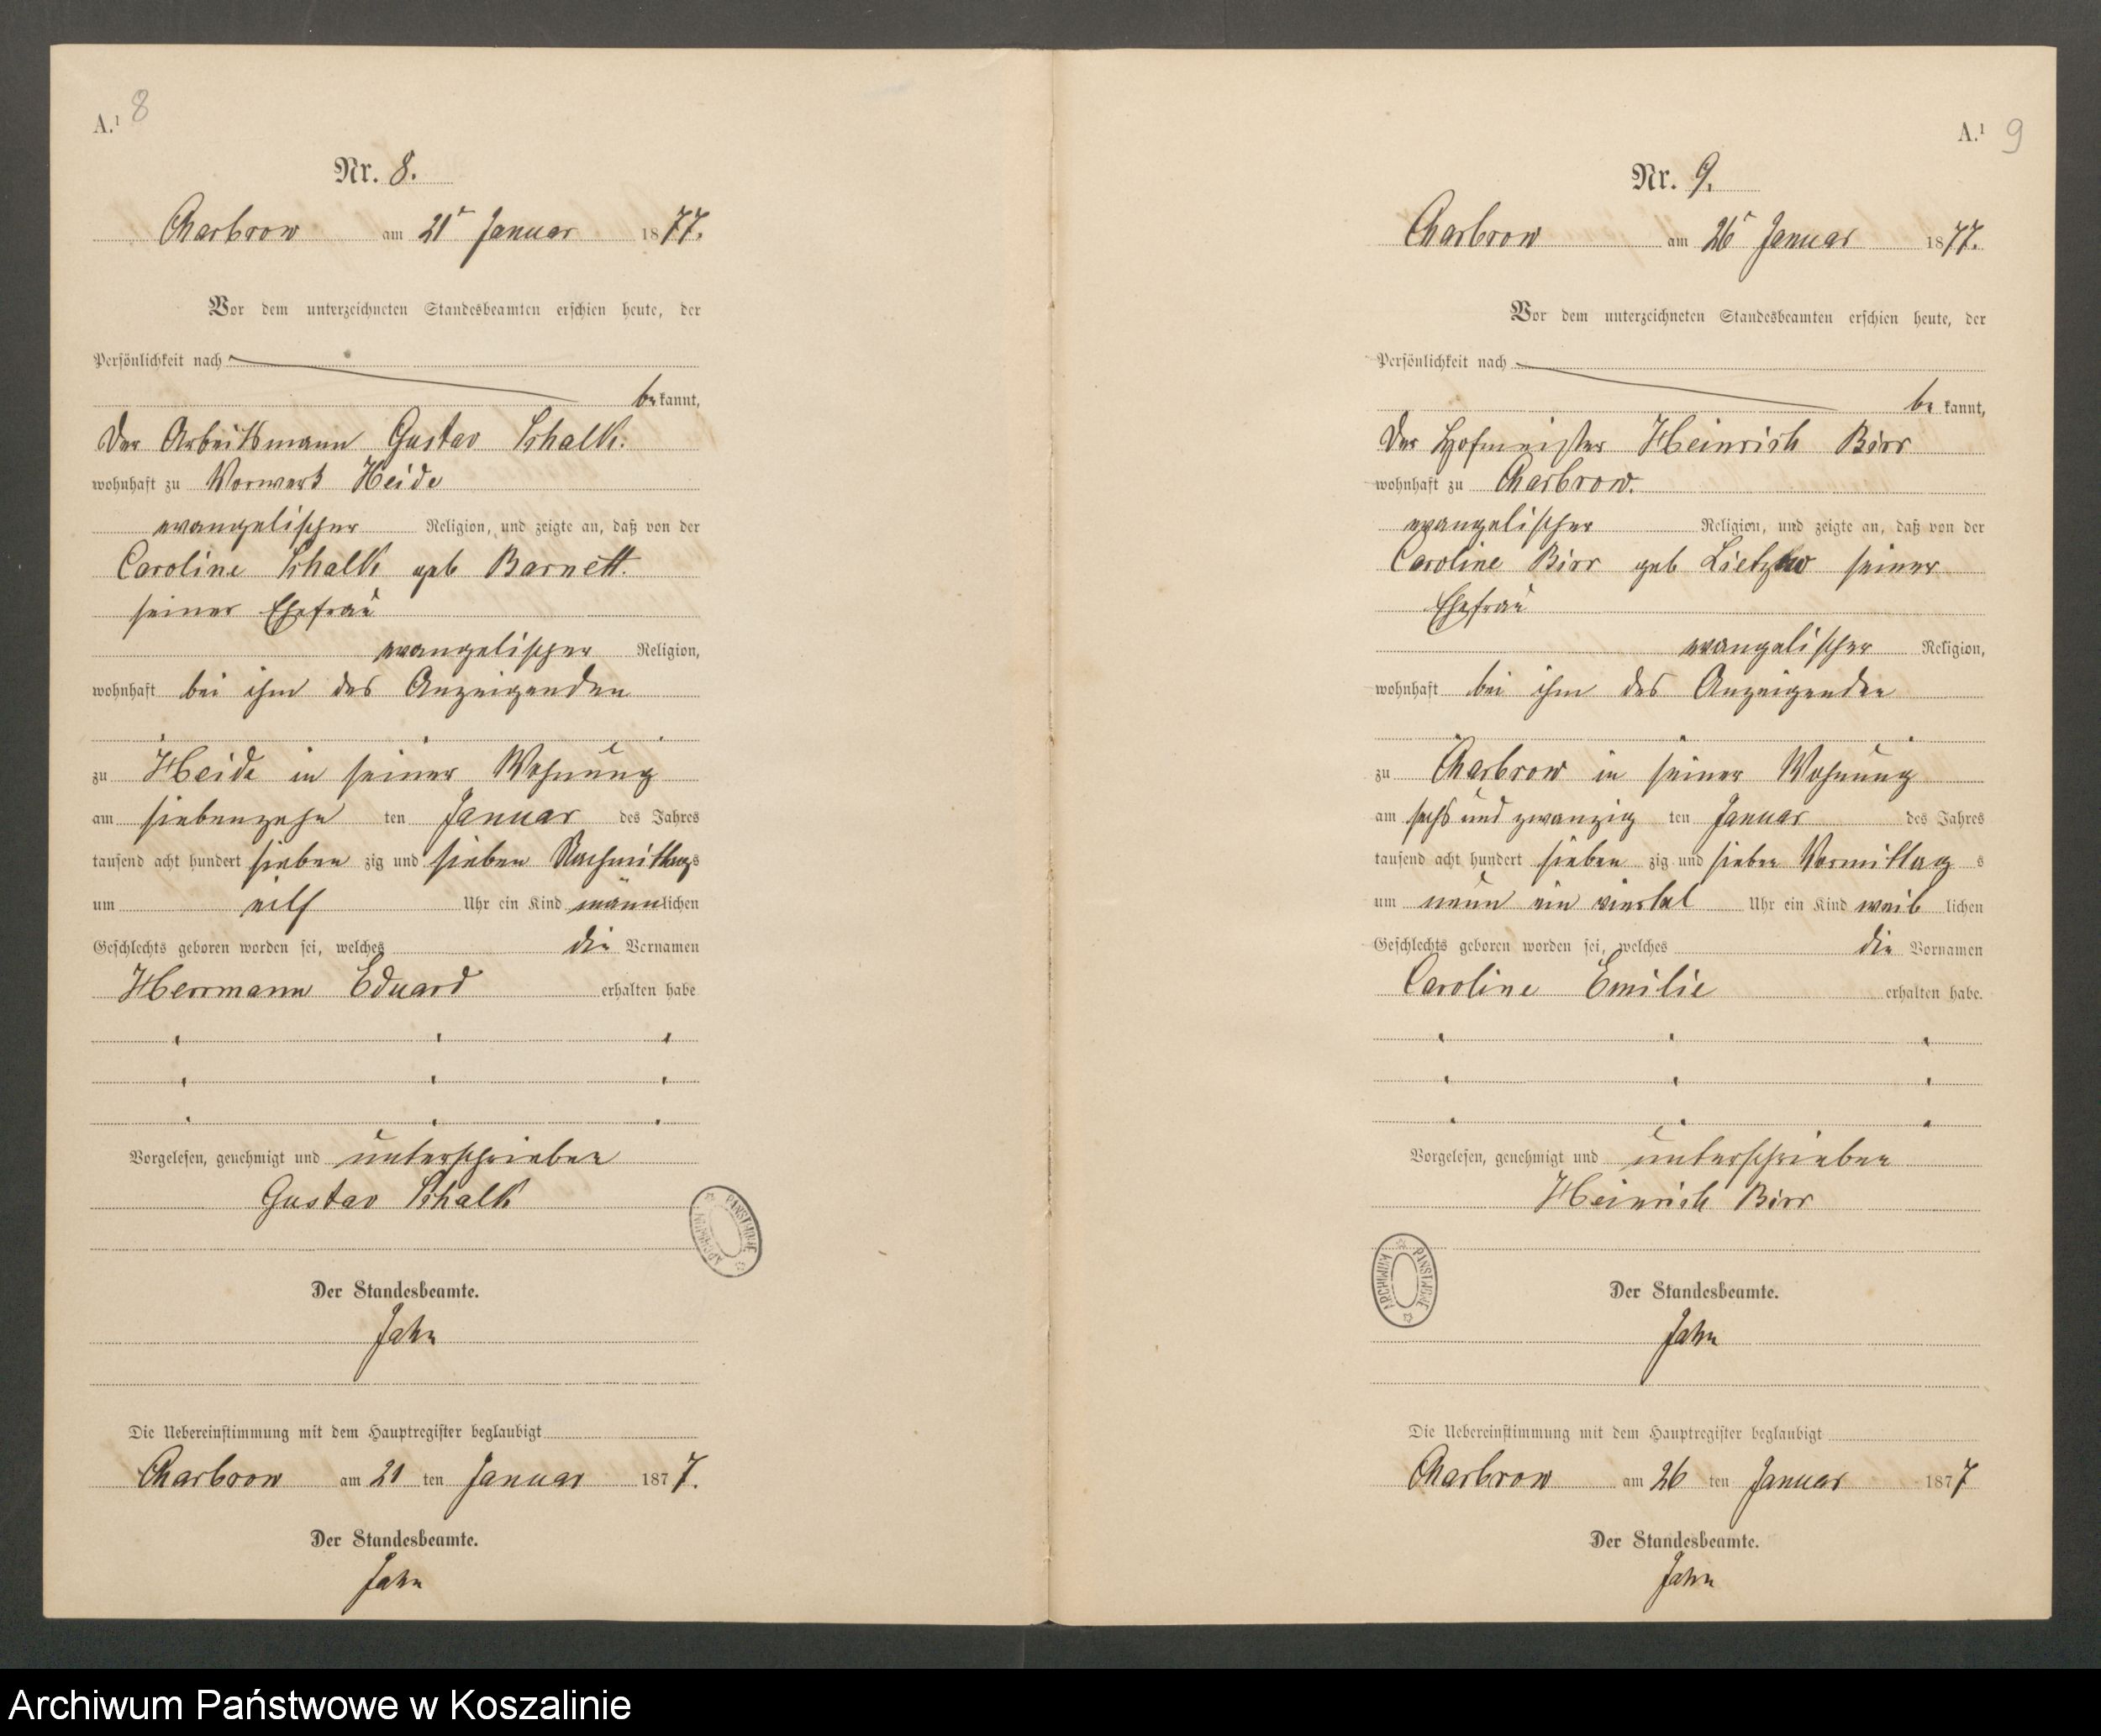 A.¹ 8
Nr. 8.
Charbrow am 21ᵗ Januar 1877.
Vor dem unterzeichneten Standesbeamten erschien heute, der
Persönlichkeit nach
bekannt,
Der Arbeitsmann Gustav Schalk.
wohnhaft zu Vorwerk Heide
evangelischer Religion, und zeigte an, daß von der
Caroline Schalk geb Barnett.
seiner Ehefrau
evangelischer Religion,
wohnhaft bei ihm des Anzeigenden
zu Heide in seiner Wohnung
am siebenzehn ten Januar des Jahres
tausend acht hundert sieben zig und sieben Nachmittags
um eilf Uhr ein Kind männlichen
Geschlechts geboren worden sei, welches die Vornamen
Herrmann Eduard erhalten habe
Vorgelesen, genehmigt und unterschrieben
Gustav Schalk
Der Standesbeamte.
Jahn
Die Uebereinstimmung mit dem Hauptregister beglaubigt
Charbrow am 21 ten Januar 1877.
Der Standesbeamte.
Jahn
ARCHIWUM PAŃSTWOWE
A.¹ 9
Nr. 9.
Charbrow am 26ᵗ Januar 1877.
Vor dem unterzeichneten Standesbeamten erschien heute, der
Persönlichkeit nach
be kannt,
Der Hofmeister Heinrich Birr
wohnhaft zu Charbrow.
evangelischer Religion, und zeigte an, daß von der
Caroline Birr geb Lietzow seiner
Ehefrau
evangelischer Religion,
wohnhaft bei ihm des Anzeigenden
zu Charbrow in seiner Wohnung
am sechs und zwanzig ten Januar des Jahres
tausend acht hundert sieben zig und sieben Vormittag s
um neun ein viertel Uhr ein Kind weib lichen
Geschlechts geboren worden sei, welches die Vornamen
Caroline Emilie erhalten habe.
Vorgelesen, genehmigt und unterschrieben
Heinrich Birr
ARCHIWUM PAŃSTWOWE
Der Standesbeamte.
Jahn
Die Uebereinstimmung mit dem Hauptregister beglaubigt
Charbrow am 26 ten Januar 1877
Der Standesbeamte.
Jahn
Archiwum Państwowe w Koszalinie